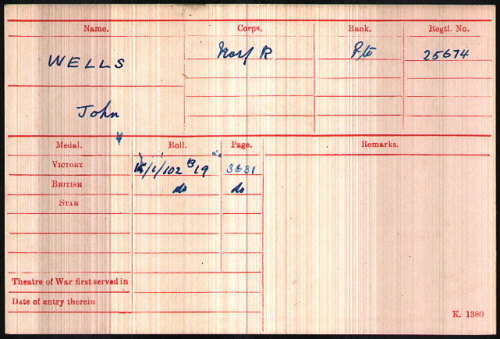 Name. Corps. Rank. Regtl. No.
WELLS Norf R Pte 25674
John
Medal. Roll. Page. Remarks.
VICTORY /1/102 B 19 3631
BRITISH do do
STAR
Theatre of War first served in
Date of entry therein
K. 1380